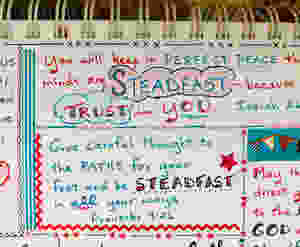 You will keep in PERFECT PEACE
minds are STEADFAST because
TRUST in YOU
Isaiah
Give careful thought to
the PATHS for your
feet and be STEADFAST
in all your ways
Proverbs 4:26
May th
direct
to the
GOD